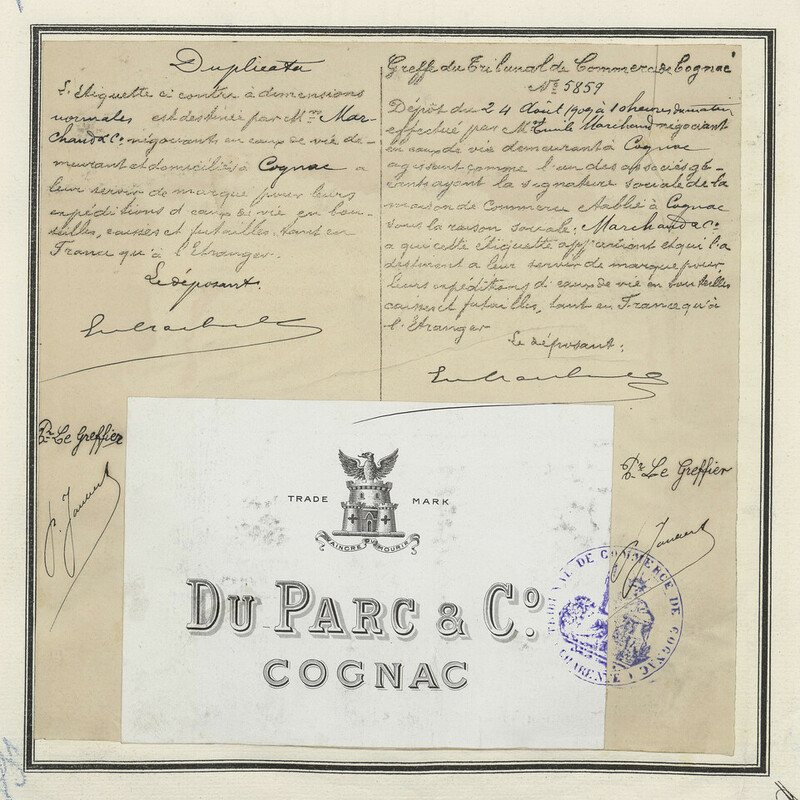 Duplicata
L'Etiquette ci contre à dimensions
normales est destinée par Mrs Mar-
chand & Co négociants en eaux de vie de-
meurant et domiciliés à Cognac a
leur servir de marque pour leurs
expéditions d'eaux de vie en bou-
teilles, caisses et futailles tant en
France qu'à l'Etranger.
Le déposant.
Greffe du Tribunal de Commerce de Cognac
No 5859
Dépôt du 24 Août 190 à 10 heures du matin
effectué par Mr Emile Marchand négociant
en eaux de vie demeurant à Cognac
agissant comme l'un des associés gé-
rants ayant la signature sociale de la
maison de Commerce établie à Cognac
sous la raison sociale: Marchand & Co
a qui cette étiquette appartient et qui l'a
destinent a leur servir de marque pour
leurs expéditions d'eaux de vie en bouteilles
caisses et futailles, tant en France qu'à
l'Étranger
Le déposant.
Pr Le Greffier
Pr Le Greffier
TRADE MARK
VAINCRE OU MOURIR
DU PARC & Co
COGNAC
TRIBUNAL DE COMMERCE DE COGNAC
CHARENTE